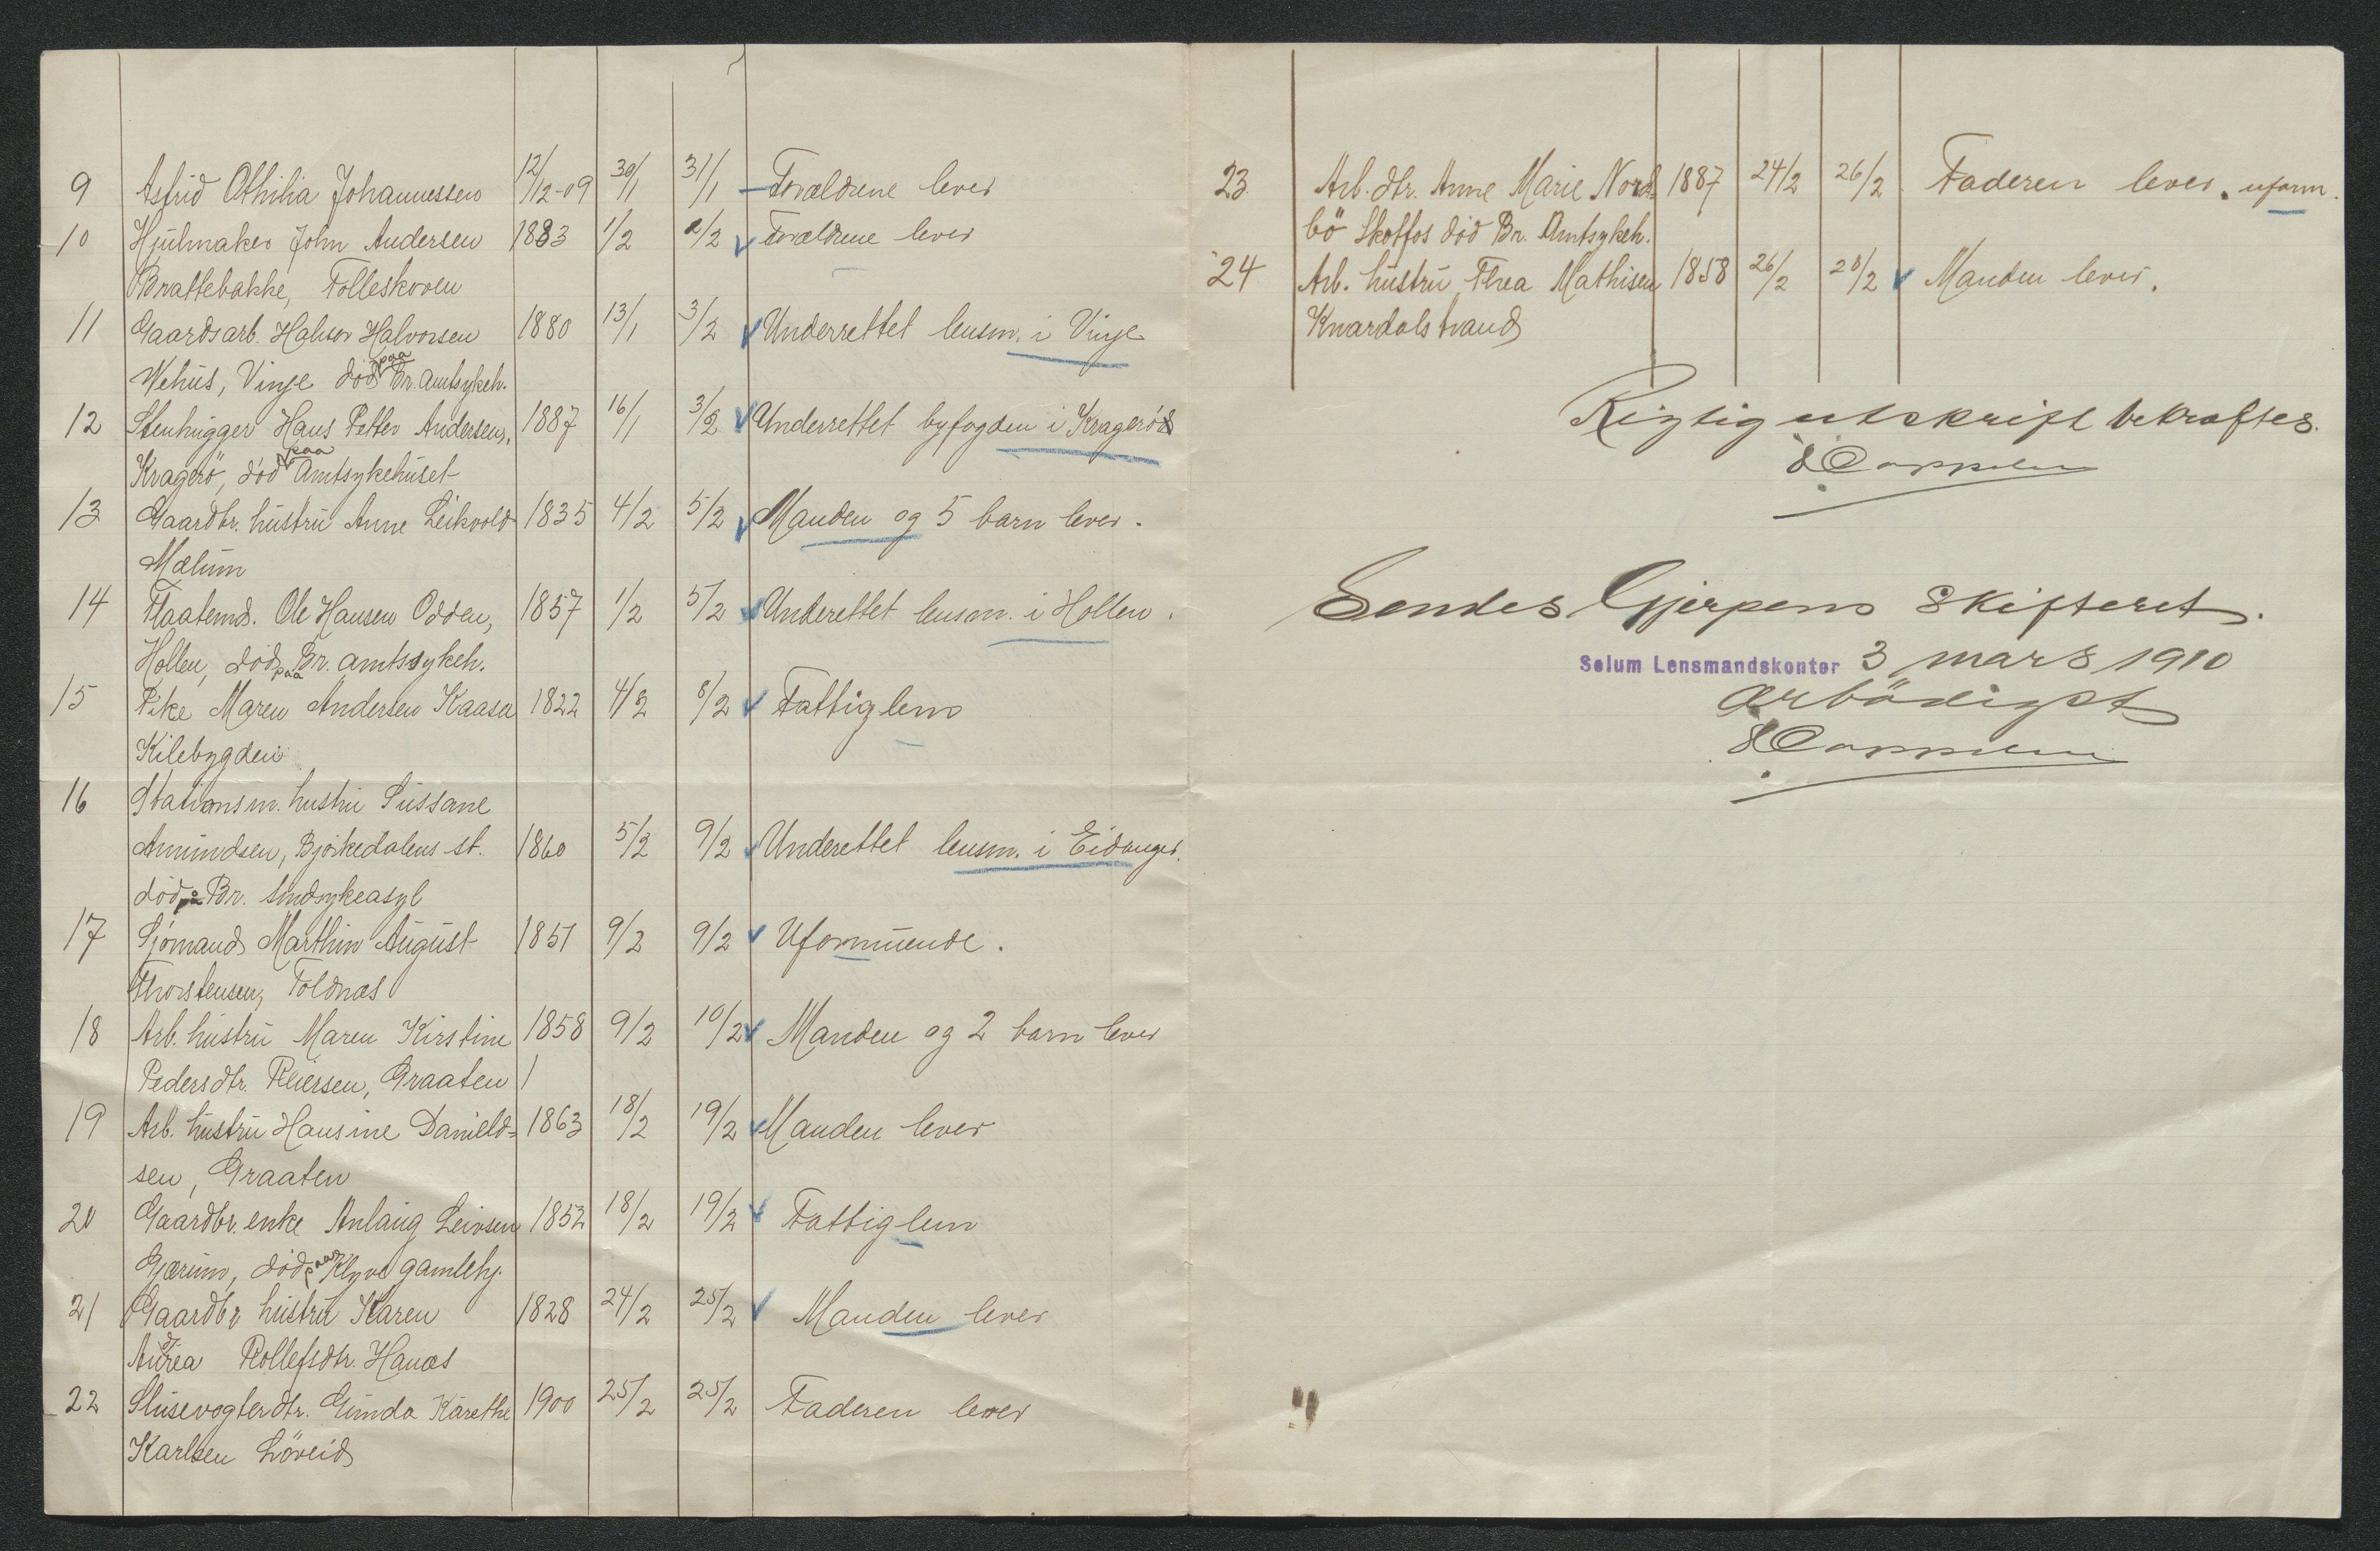 9 Astrid Othilia Johannessen 12/12-09 30/1 31/1 Forældrene lever
10 Hjulmaker John Andersen 1883 1/2 2/2 Forældrene lever
Brattebakke, Folleskoven
11 Gaardsarb. Halvor Halvorsen 1880 13/1 3/2 Underrettet lensm. i Vinje
Wehus, Vinje död paa Br. amtsykeh.
12 Stenhugger Hans Petter Andersen, 1887 16/1 3/2 Underrettet byfogden i Kragerö
Kragerö, död paa Amtsykehuset
13 Gaardbr. hustru Anne Leikvold 1835 4/2 5/2 Manden og 5 barn lever.
Mælum
14 Flaatemd. Ole Hansen Odden, 1857 1/2 5/2 Underettet lensm. i Hollen.
Hollen, död paa Br. amtssykeh.
15 Pike Maren Andersen Kaasa 1822 4/2 8/2 Fattiglem
Kilebygden
16 Stationsm. hustru Sussane
Amundsen, Bjørkedalens st. 1860 5/2 9/2 Underettet lensm. i Eidanger.
död på Br. sindsykeasyl
17 Sjömand Marthin August 1851 9/2 9/2 Uformuende.
Thorstensen, Foldnæs
18 Arb. hustru Maren Kirstine 1858 9/2 10/2 Manden og 2 barn lever
Pedersdtr. Graaten
19 Arb. hustru Hansine Danield= 1863 18/2 19/2 Manden lever
sen, Graaten
20 Gaardbr. enke Anlaug Leivsen 1852 18/2 19/2 Fattiglem
Gjærum, död paa Klyve gamlehj.
21 Gaardbr hustru Karen 1828 24/2 25/2 Manden lever
Aurea Rollefsdtr. Hanæs
22 Slusevogterdtr. Gunda Karethe 1900 25/2 25/2 Faderen lever
Karlsen Löveid
23 Arb. dtr. Anne Marie Nord= 1887 24/2 26/2 Faderen lever. uform.
bö Skotfos död Br. Amtsykeh.
24 Arb. hustru Thea Mathisen 1858 26/2 28/2 Manden lever.
Knardalstrand
Rigtig utskrift bekræftes.
Cappelen
Sendes Gjerpens Skifteret.
Solum Lensmandskontor 3 mars 1910
ærbödigst
Cappelen